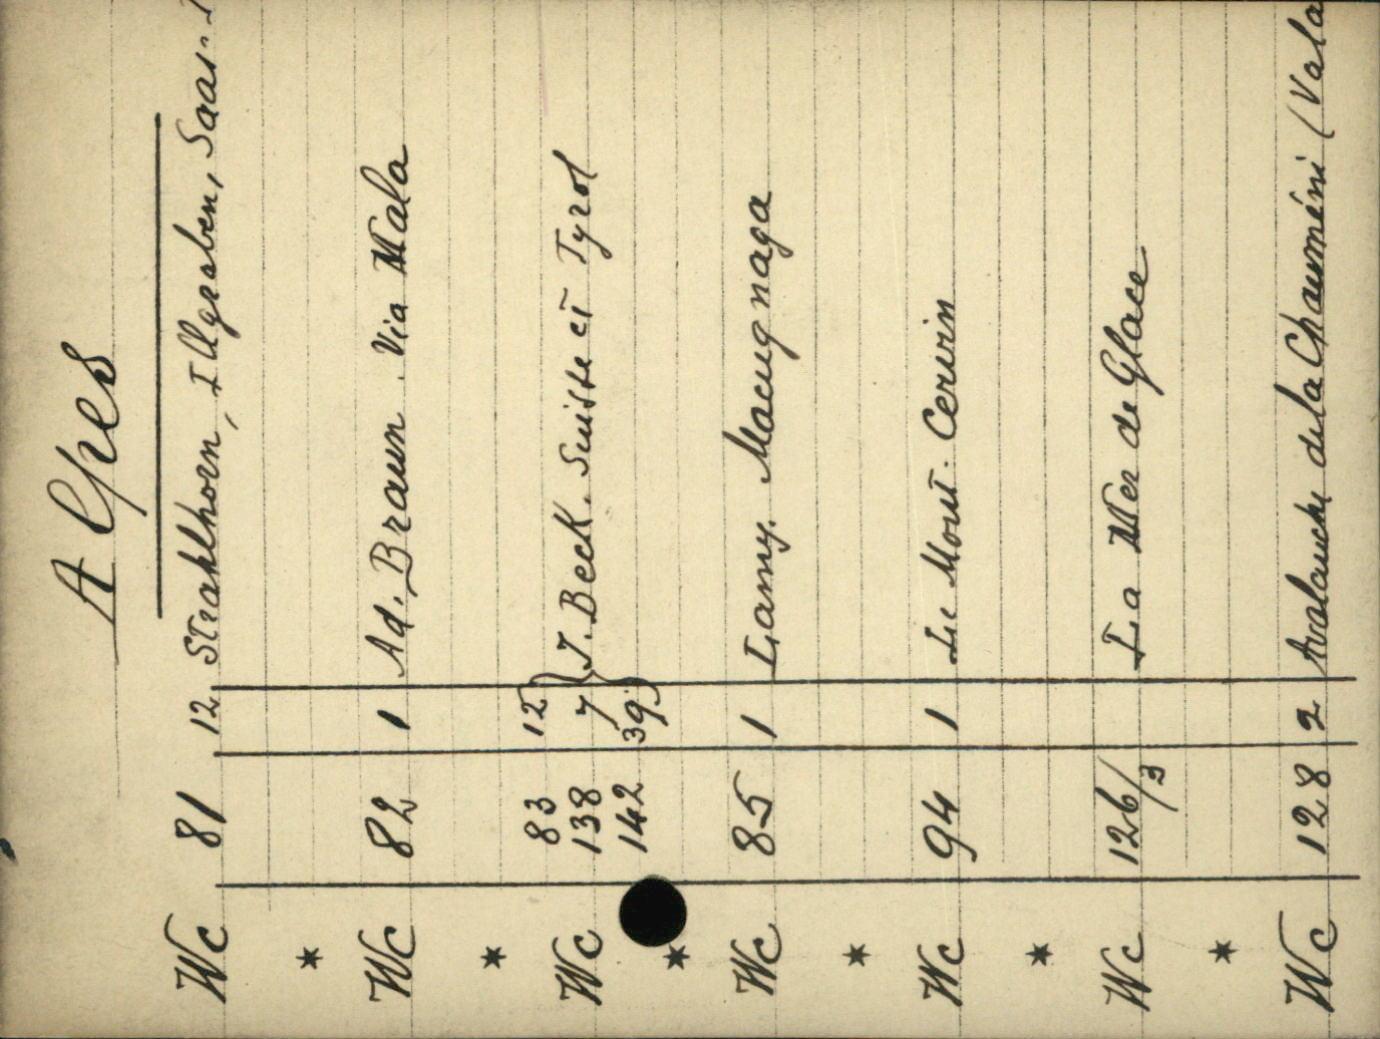 Alpes
Wc 81 12 Strahlhorn, Illgraben, Saas-
*
Wc 82 1 Ad. Braun. Via Mala
*
83 12
Wc 138 7 J. Beck. Suisse et Tyrol
142 39
*
Wc 85 1 Lamy. Macugnaga
*
Wc 94 1 Le Mont-Cervin
*
Wc 126/3 La Mer de Glace
*
Wc 128 2 Avalanche de la (Vala